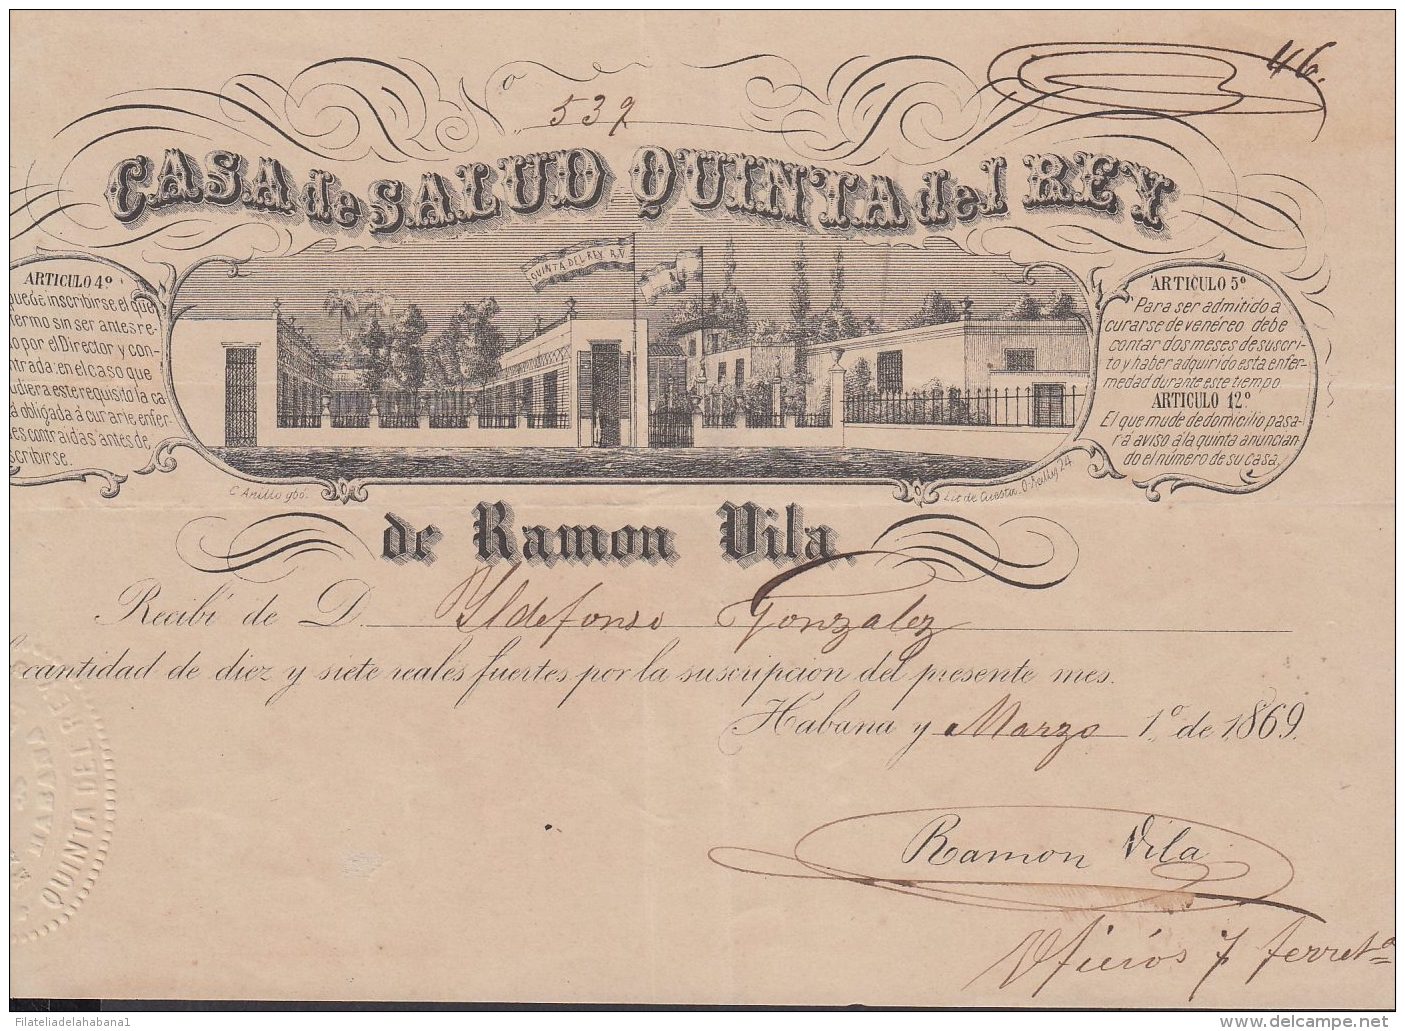 46.
Nº 539
CASA de SALUD QUINTA del REY
QUINTA DEL REY R.V.
ARTICULO 4º
puede inscribirse el que
fermo sin ser antes re-
o por el Director y con-
ntrada: en el caso que
udiera este requisito la ca
á obligada á curarle enfer-
des contraidas antes de
scribirse.
ARTICULO 5º
Para ser admitido a
curarse de venéreo debe
contar dos meses de suscri-
to y haber adquirido esta enfer-
medad durante este tiempo
ARTICULO 12º
El que mude de domicilio pasa-
ra aviso a la quinta anuncian-
do el número de su casa.
C. Anillo gbó.
Lit de Cuesta. O-Reilly 24
de Ramon Vila.
Recibí de D. Yldefonso Gonzalez
cantidad de diez y siete reales fuertes por la suscripcion del presente mes.
Habana y Marzo 1º de 1869.
QUINTA DEL REY
HABANA
Ramon Vila
Oficios 7 Ferretª
Filateliadelahabana1
www.delcampe.net